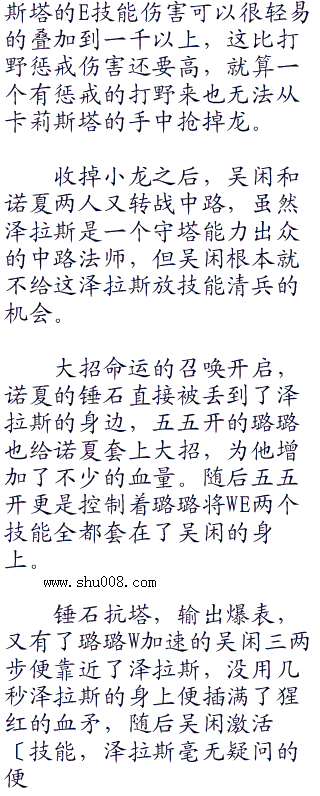 斯塔的E技能伤害可以很轻易
的叠加到一千以上，这比打
野惩戒伤害还要高，就算一
个有惩戒的打野来也无法从
卡莉斯塔的手中抢掉龙。
收掉小龙之后，吴闲和
诺夏两人又转战中路，虽然
泽拉斯是一个守塔能力出众
的中路法师，但吴闲根本就
不给这泽拉斯放技能清兵的
机会。
大招命运的召唤开启，
诺夏的锤石直接被丢到了泽
拉斯的身边，五五开的璐璐
也给诺夏套上大招，为他增
加了不少的血量。随后五五
开更是控制着璐璐将WE两个
技能全都套在了吴闲的身
上。
www.shu008.com
锤石抗塔，输出爆表，
又有了璐璐W加速的吴闲三两
步便靠近了泽拉斯，没用几
秒泽拉斯的身上便插满了猩
红的血矛，随后吴闲激活
〔技能，泽拉斯毫无疑问的
便